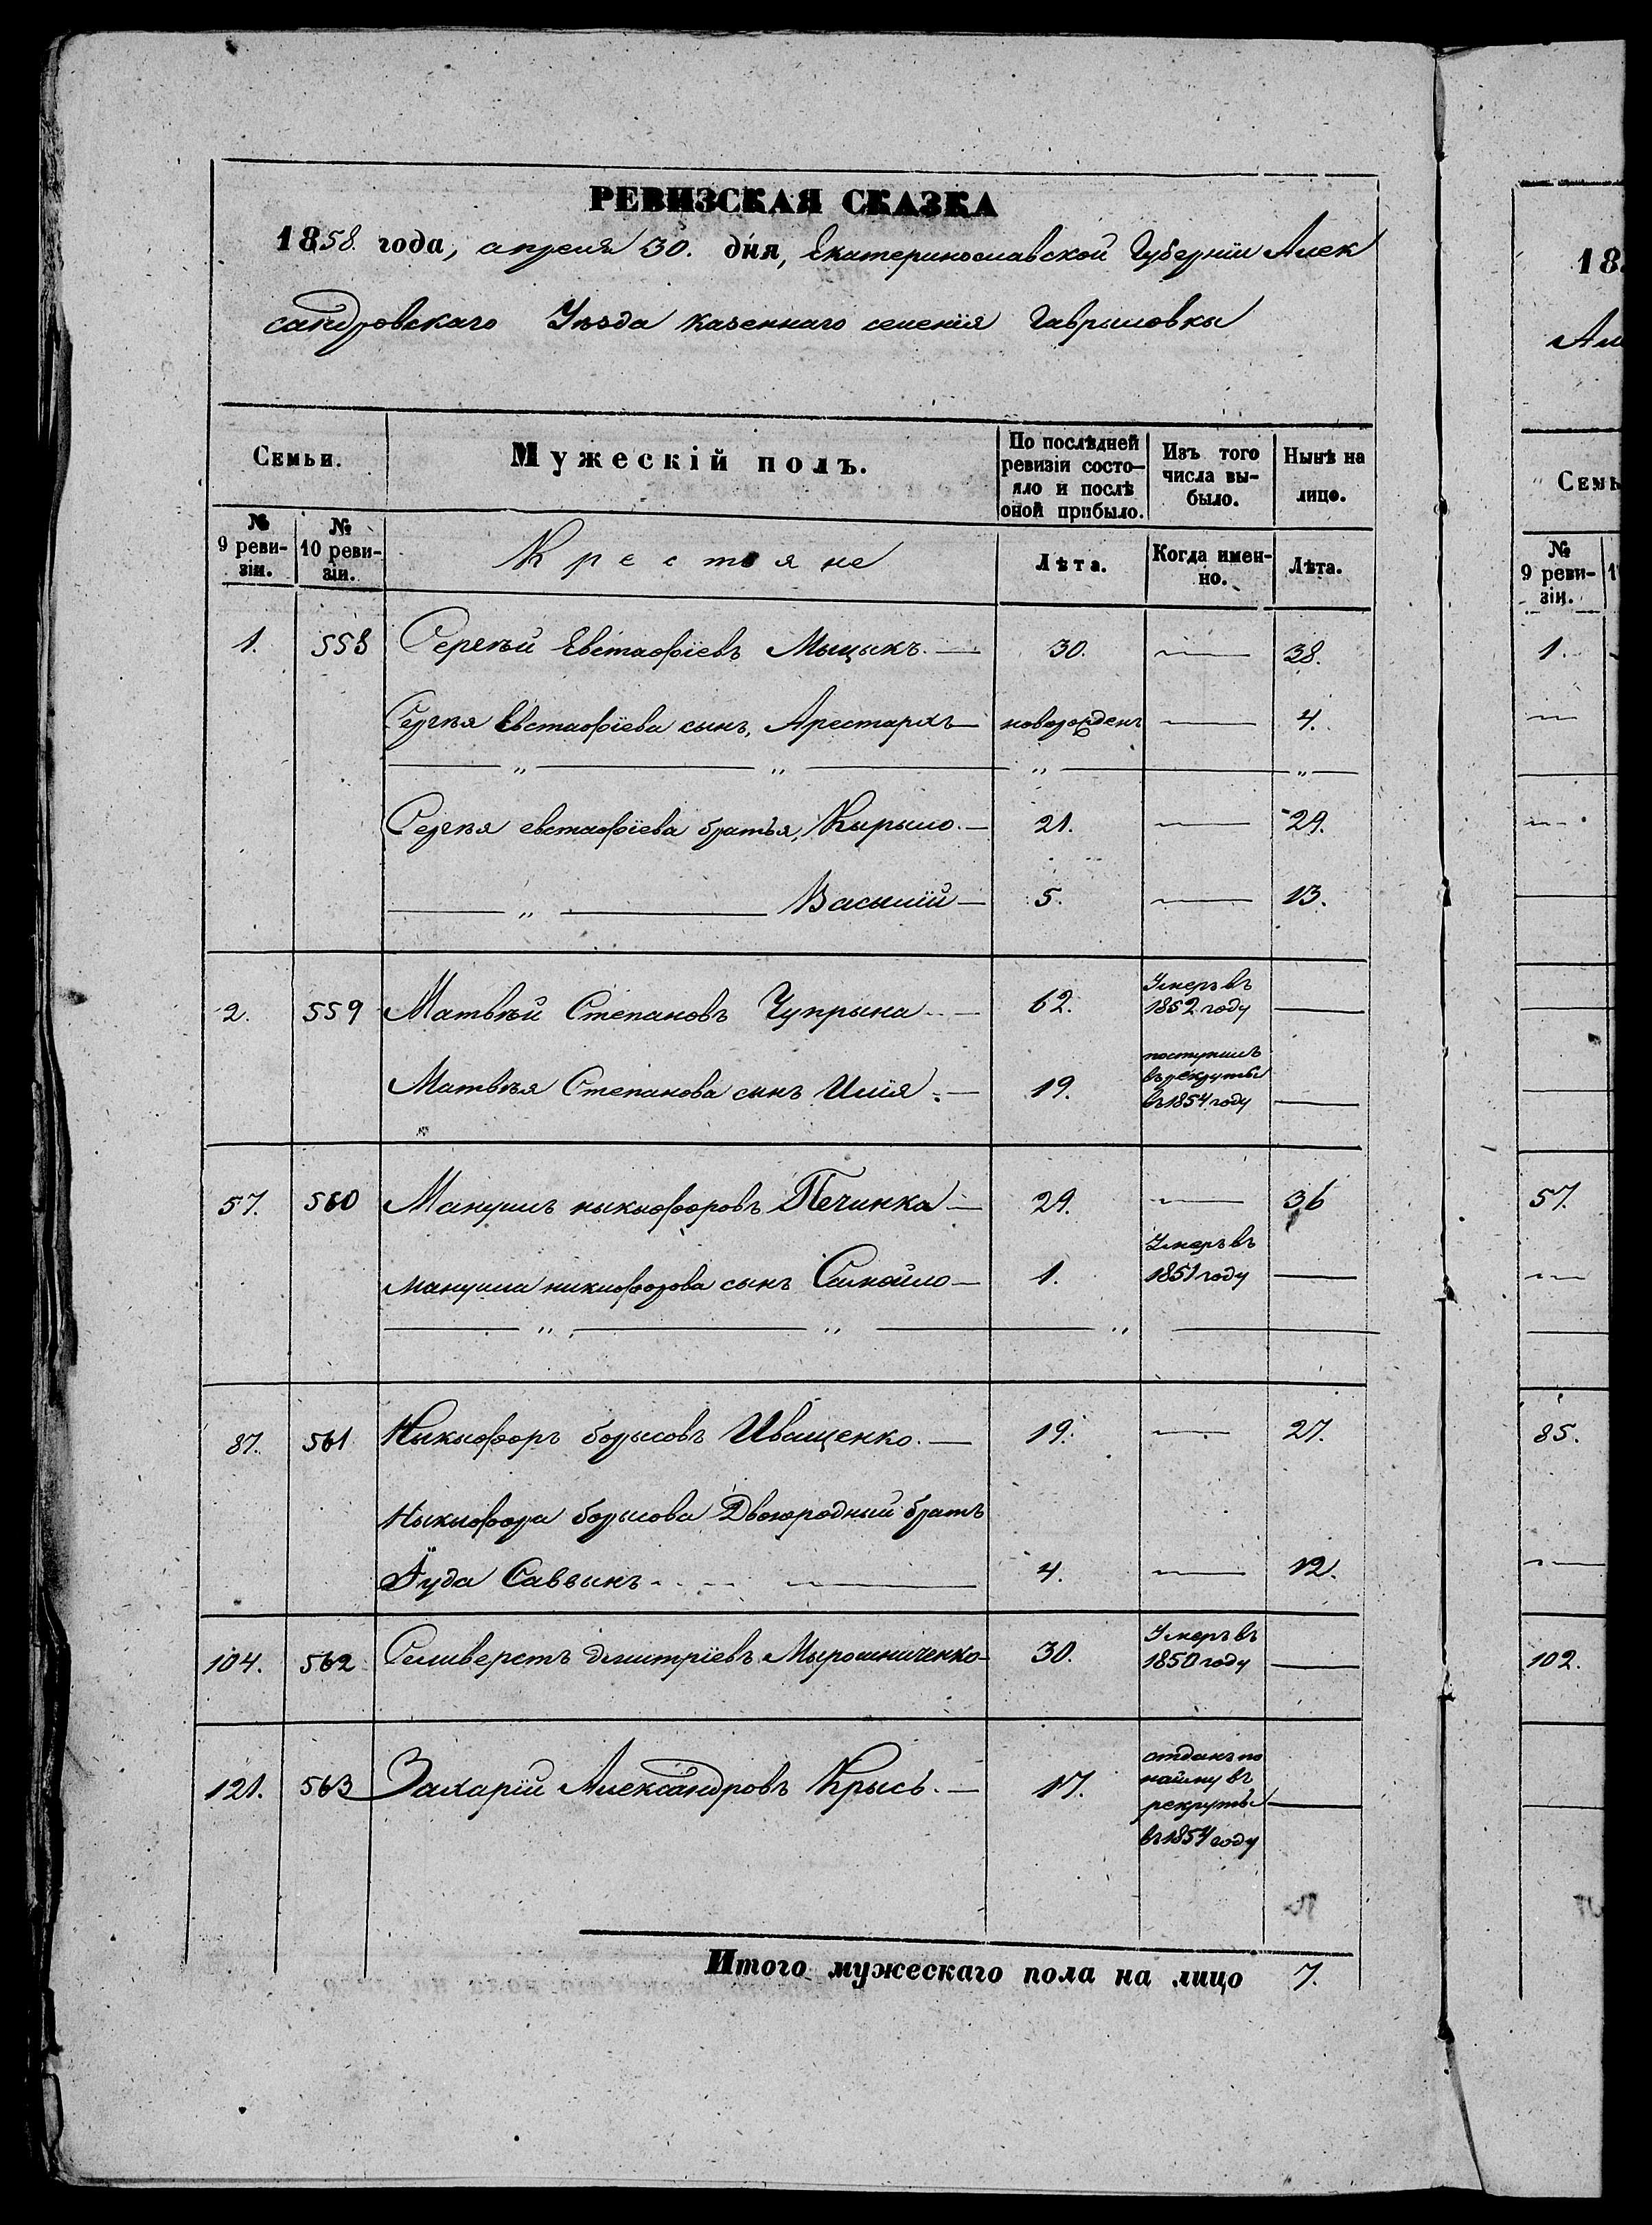 РЕВИЗСКАЯ СКАЗКА
1858. года, апреля 30. дня, Екатеринославской Губернiи Алек
сандровскаго Уѣзда казеннаго селенiя Гаврыловкы
Семьи.
Мужескiй полъ.
По послѣдней ревизiи состояло и послѣ оной прибыло.
Изъ того числа выбыло.
Нынѣ на лицо.
№ 9 ревизiи.
№ 10 ревизiи.
Крестьяне
Лѣта.
Когда именно.
Лѣта.
1. 558 Сергѣй Евстафiевъ Мыцыкъ. — 30. — 38.
Сергѣя Евстафiева сынъ, Арестархъ — новорожденъ — 4.
— „ — „ — „ — „ —
Сергѣя евстафiева братья, Кырыло. — 21. — 29.
— „ — Васылiй — 5. — 13.
2. 559 Матвѣй Степановъ Чупрына — 62. Умеръ въ 1852 году —
Матвѣя Степанова сынъ Илiя. — 19. поступилъ въ рекруты въ 1854 году —
57. 560 Мануилъ ныкыфоровъ Печинка — 29. — 36
Мануила никифорова сынъ Самойло — 1. Умеръ въ 1851 году —
— „ — „ — „ —
87. 561 Ныкыфоръ борысовъ Иващенко. — 19. — 27.
Ныкыфора борысова Двоюродный братъ
Iуда Саввынъ — 4. — 12.
104. 562 Селиверстъ дмитрiевъ Мырошниченко — 30. Умеръ въ 1850 году —
121. 563 Захарiй Александровъ Крысь. — 17. отданъ по найму въ рекруты въ 1854 году —
Итого мужескаго пола на лицо 7.
18
Ал
Семь
№ 9 ревизiи.
1.
57.
85.
102.